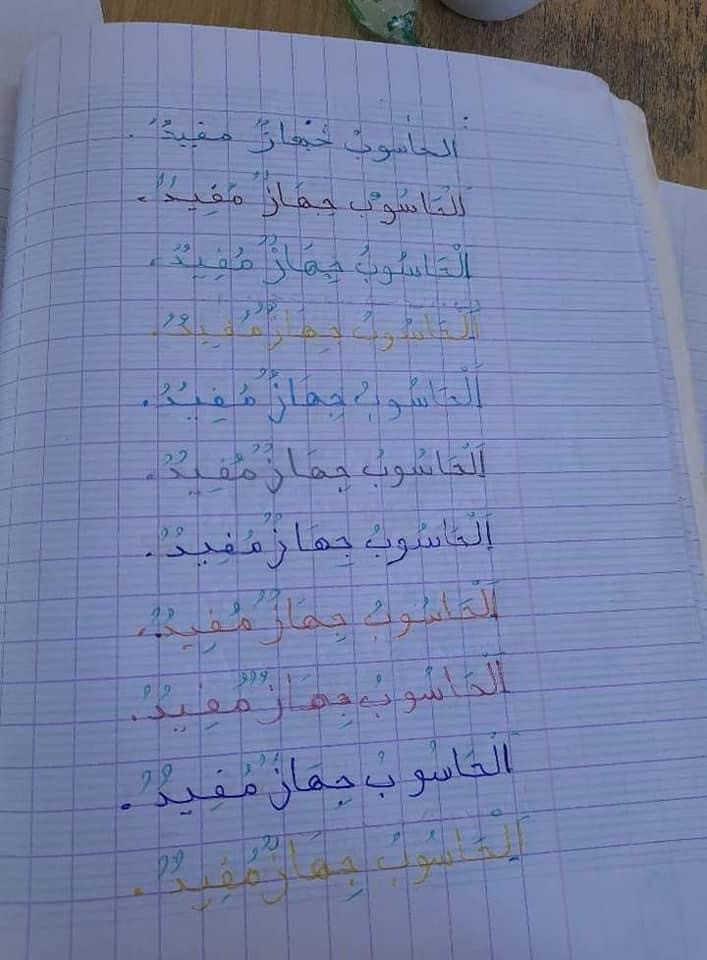 الحاسوبُ جَهازٌ مفيدٌ.
اَلْحَاسُوبُ جِهَازٌ مُفِيدٌ.
اَلْحَاسُوبُ جِهَازٌ مُفِيدٌ.
اَلْحَاسُوبُ جِهَازٌ مُفِيدٌ.
اَلْحَاسُوبُ جِهَازٌ مُفِيدٌ.
اَلْحَاسُوبُ جِهَازٌ مُفِيدٌ.
اَلْحَاسُوبُ جِهَازٌ مُفِيدٌ.
اَلْحَاسُوبُ جِهَازٌ مُفِيدٌ.
اَلْحَاسُوبُ جِهَازٌ مُفِيدٌ.
اَلْحَاسُوبُ جِهَازٌ مُفِيدٌ.
اَلْحَاسُوبُ جِهَازٌ مُفِيدٌ.